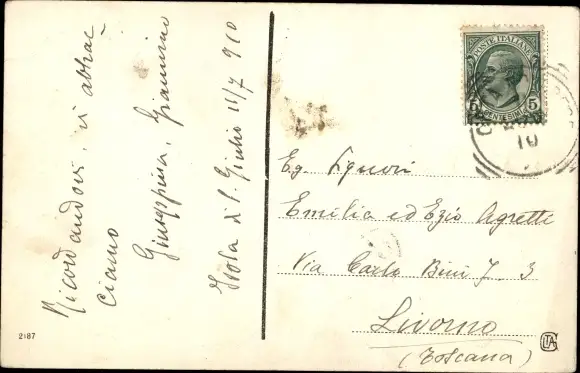 Ricordandovi, vi abbrac
ciamo
Giuseppina, Giannino
Isola di S. Giulio 11/7 910
2187
POSTE ITALIANE
5 CENTESIMI 5
10
Eg. Signori
Emilia ed Ezio Agretti
Via Carlo Bini N. 3
Livorno
(Toscana)